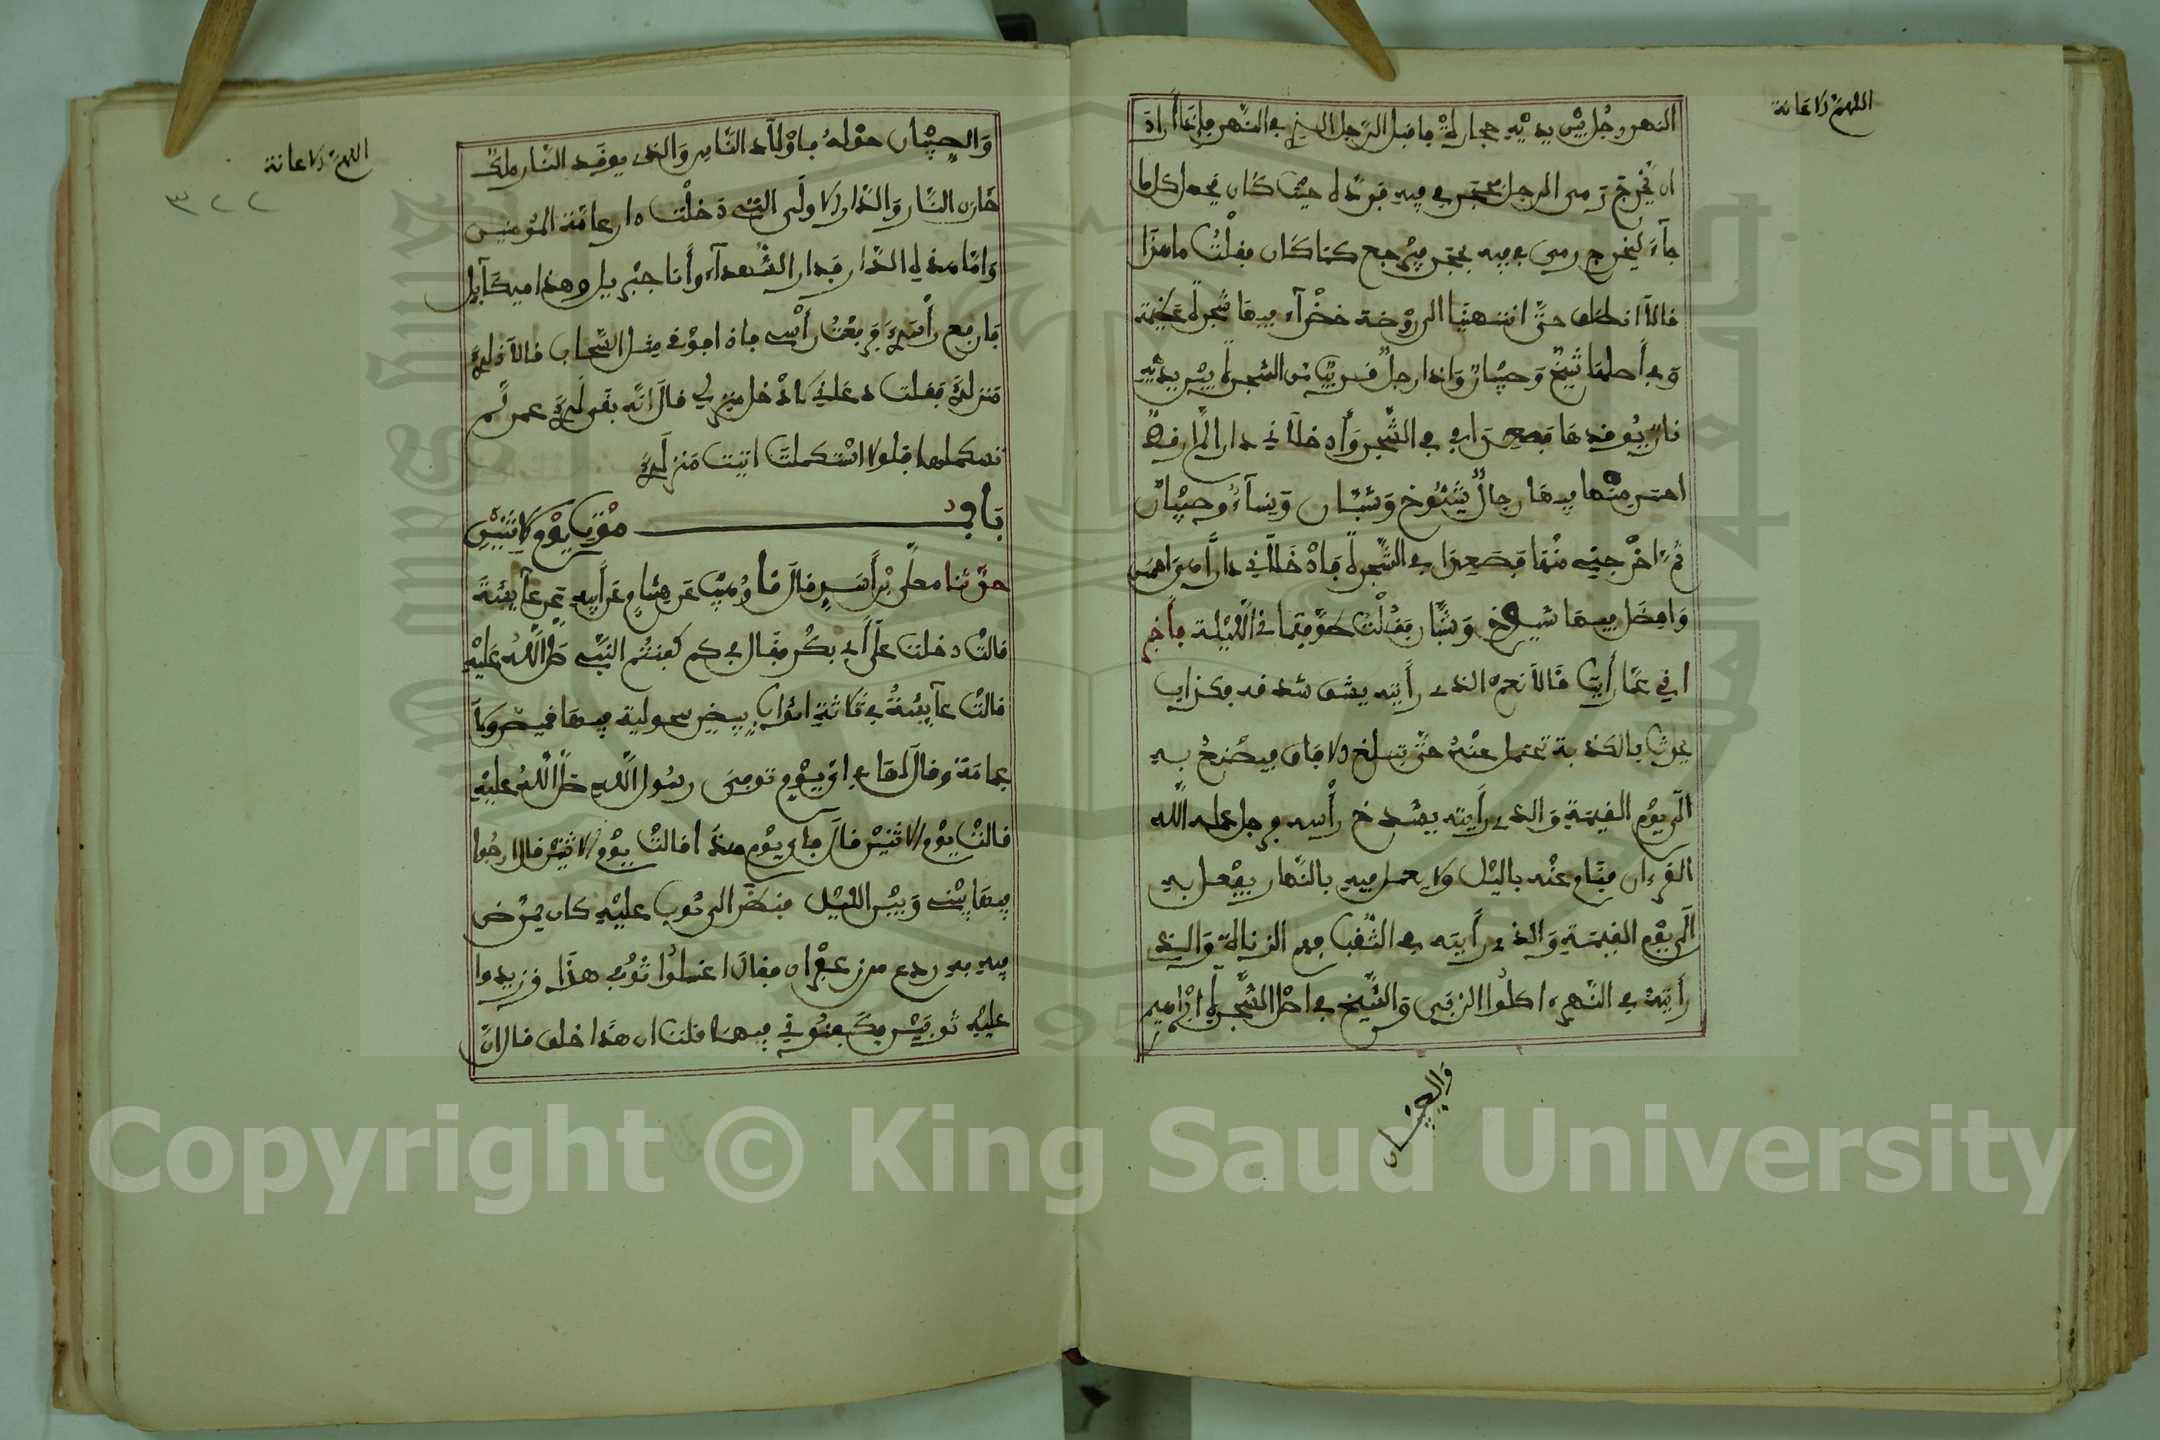 اللهم الاعانة
النهر ورجل بين يديه حجارة فاقبل الرجل الذي في النهر فإذا أراد
ان يخرج رمى الرجل بحجر في فيه فرده حيث كان فجعل كلما
جآء ليخرج رمى في فيه بحجر فيرجع كما كان فقلت ما هذا
قالا انطلق حتى انتهينا الى روضة خضرآء فيها شجرة عظيمة
وفي أصلها شيخ وصبيان واذا رجل قريب من الشجرة بين يديه
نار يوقدها فصعدا بي في الشجر وأدخلاني دارا لم ار قط
احسن منها فيها رجال شيوخ وشباب ونسآء وصبيان
ثم اخرجني منها فصعدا بي الشجرة فادخلاني دارا هي احسن
وافضل فيها شيوخ وشباب فقلت طوفتماني الليلة فأخبر
اني عما رأيت قالا نعم الذي رأيته يشق شدقه فكذاب
يحدث بالكذبة تحمل عنه حتى تبلغ الافاق فيصنع به
الى يوم القيمة والذي رأيته يشدخ رأسه فرجل علمه الله
القرءان فنام عنه بالليل ولم يعمل فيه بالنهار يفعل به
الى يوم القيمة والذي رأيته في الثقب فهم الزناة والذي
رأيته في النهر ءاكلوا الربى والشيخ في اصل الشجرة ابراهيم
والصبيان
اللهم الاعانة
٣٢٢
والصبيان حوله فاولاد الناس والذي يوقد النار ملك
خازن النار والدار الاولى التي دخلت دار عامة المؤمنين
واما هذه الدار فدار الشهدآء وأنا جبريل وهذا ميكآيل
فارفع رأسك فرفعت رأسي فاذا فوقي مثل السحاب قالا ذلك
منزلك فقلت دعاني ادخل منزلي قالا انه بقي لك عمر لم
تستكمله فلو استكملت اتيت منزلك
باب موت يوم الاثنين
حدثنا معلى بن أسد قال نا وهيب عن هشام عن أبيه عن عآيشة
قالت دخلت على أبي بكر فقال في كم كفنتم النبي صلى الله عليه
قالت عآيشة في ثلاثة اثواب بيض سحولية ليس فيها قميص ولا
عمامة وقال لها في اي يوم توفي رسول الله صلى الله عليه
قالت يوم الاثنين قال فاي يوم هذا قالت يوم الاثنين قال ارجوا
فيما بيني وبين الليل فنظر الى ثوب عليه كان يمرض
فيه به ردع من زعفران فقال اغسلوا ثوبي هذا وزيدوا
عليه ثوبين فكفنوني فيهما قلت ان هذا خلق قال ان
Copyright © King Saud University